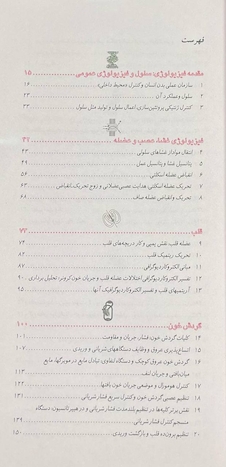 فهرست
مقدمه فیزیولوژی: سلول و فیزیولوژی عمومی ۱۵
۱ سازمان عملی بدن انسان و کنترل «محیط داخلی» ۱۶
۲ سلول و عملکرد آن ۲۳
۳ کنترل ژنتیکی پروتئین‌سازی، اعمال سلول و تولید مثل سلول ۳۳
فیزیولوژی غشا، عصب و عضله
۴ انتقال مواد از غشاهای سلولی
۵ پتانسیل غشا و پتانسیل عمل ۴۹
۶ انقباض عضله اسکلتی ۵۶
۷ تحریک عضله اسکلتی: هدایت عصبی‌عضلانی و زوج تحریک‌انقباض ۶۳
۸ تحریک و انقباض عضله صاف ۶۸
قلب ۷۳
۹ عضله قلب، نقش پمپی و کار دریچه‌های قلب ۷۴
۱۰ تحریک ریتمیک قلب ۸۲
۱۱ مبانی الکتروکاردیوگرافی ۸۷
۱۲ تفسیر الکتروکاردیوگرافی اختلالات عضله قلب و جریان خون کرونر: تحلیل برداری ۹۰
۱۳ آریتمیهای قلب و تفسیر الکتروکاردیوگرافیک آنها ۹۵
گردش خون ۱۰۰
۱۴ کلیات گردش خون: فشار، جریان و مقاومت ۱۰۱
۱۵ اتساع‌پذیری عروق و وظایف دستگاههای شریانی و وریدی ۱۰۷
۱۶ گردش خون عروق کوچک و دستگاه لنفاوی: تبادل مایع در مویرگها، مایع
میان‌بافتی و جریان لنف ۱۱۳
۱۷ کنترل هومورال و موضعی جریان خون بافتها ۱۲۲
۱۸ تنظیم عصبی گردش خون و کنترل سریع فشار شریانی ۱۳۱
۱۹ نقش برتر کلیه‌ها در تنظیم بلندمدت فشار شریانی و در هیپرتانسیون: دستگاه
منسجم کنترل فشار شریانی ۱۳۹
۲۰ تنظیم برون‌ده قلب و بازگشت وریدی ۱۵۰